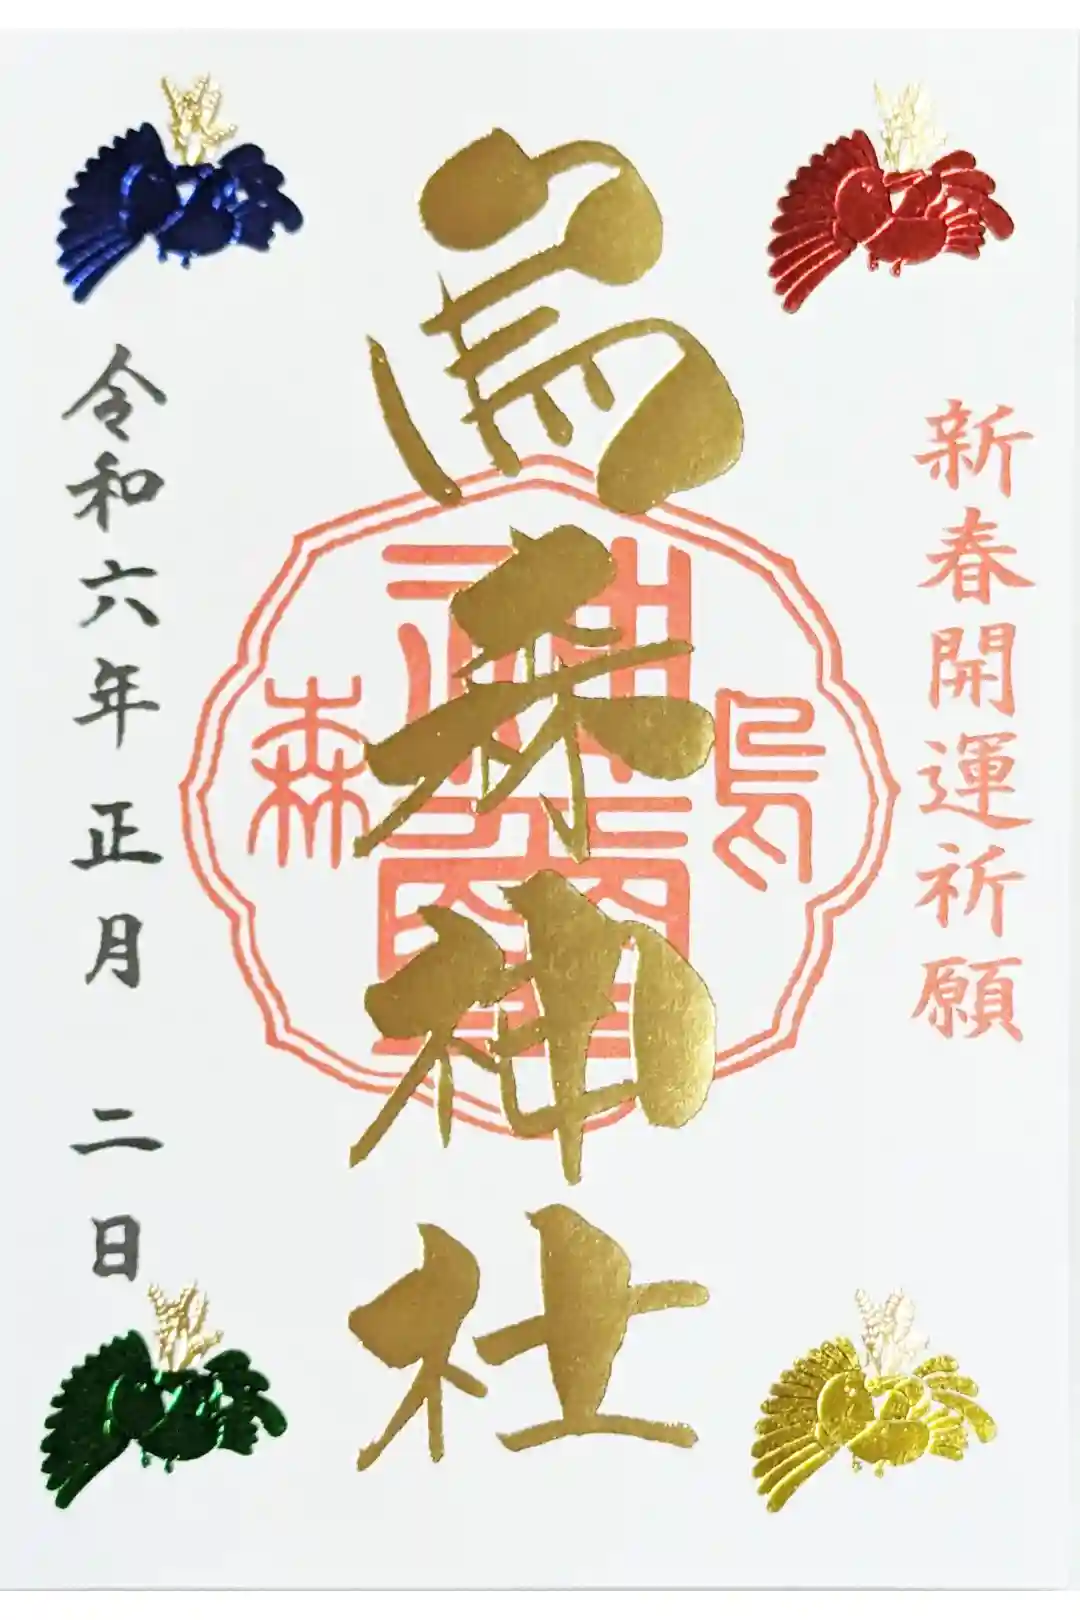 新春開運祈願
烏森神社
烏
神璽
森
令和六年正月二日